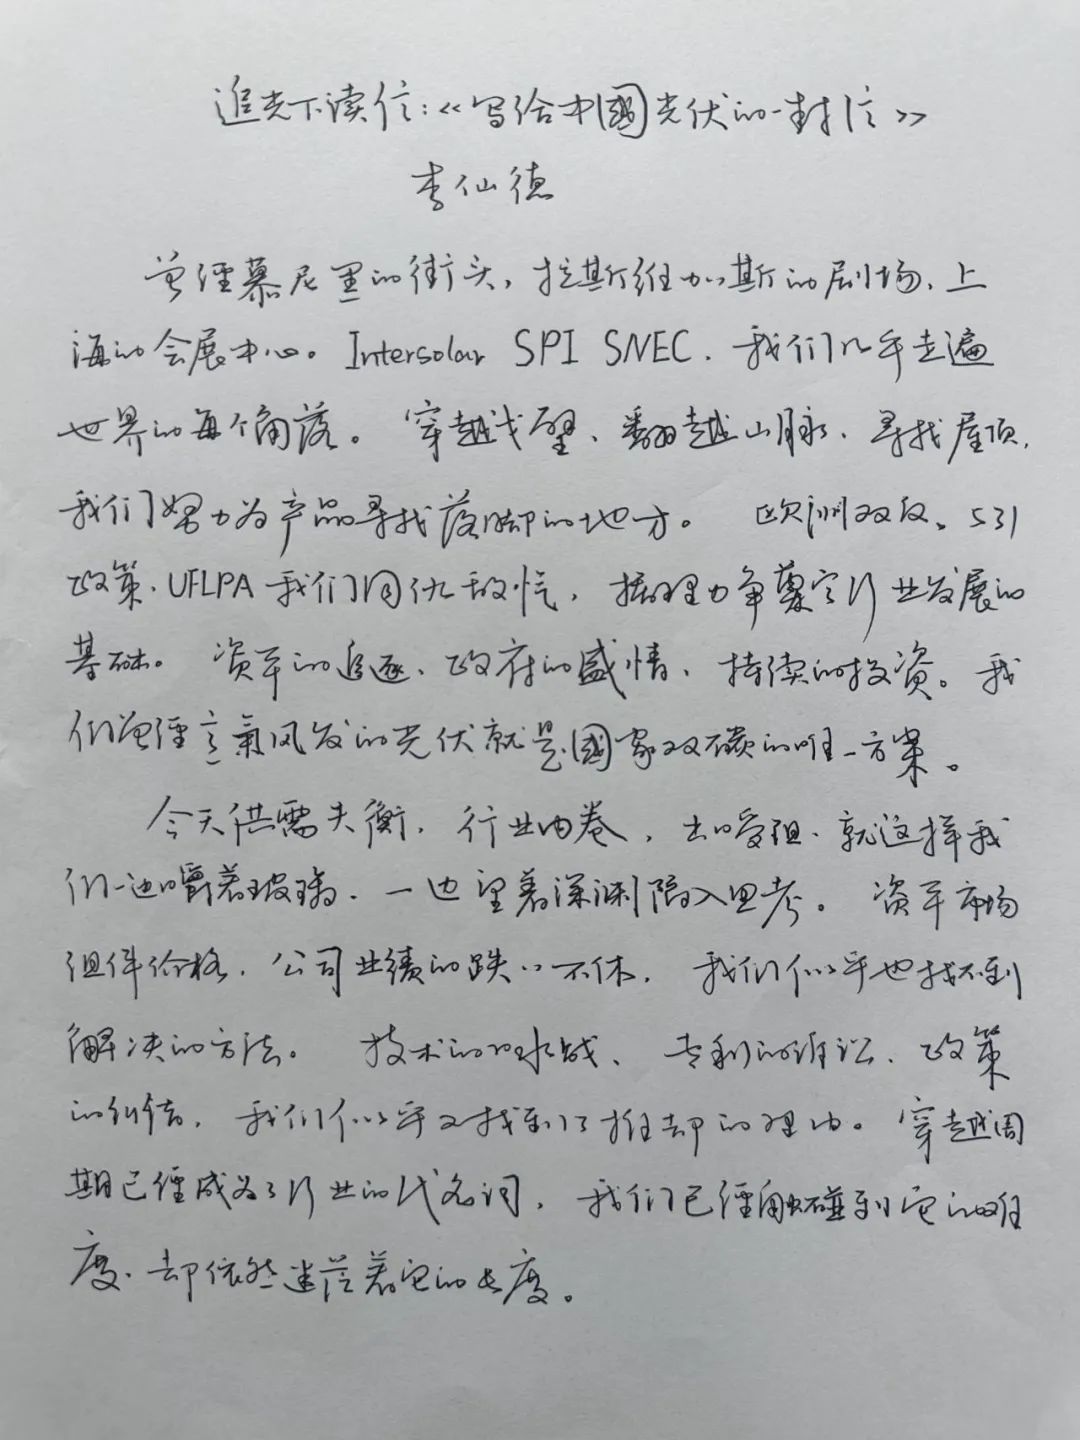 追光下读信：《写给中國光伏的一封信》
李仙德
曾经慕尼黑的街头，拉斯维加斯的剧场、上
海的会展中心。Intersolar SPI SNEC、我们几乎走遍
世界的每个角落。穿越戈壁、翻越山脉、寻找屋顶，
我们努力为产品寻找落脚的地方。欧洲双反、531
政策、UFLPA我们同仇敌忾，据理力争奠定行业发展的
基础。资本的追逐、政府的盛情、持续的投资。我
们曾经意氣风发的光伏就是國家双碳的唯一方案。
今天供需失衡，行业内卷，出口受阻、就这样我
们一边嚼着玻璃、一边望着深渊陷入思考。资本市场
组件价格、公司业绩的跌跌不休，我们似乎也找不到
解决的方法。技术的口水战、专利的诉讼、政策
的纠结，我们似乎又找到了推却的理由。穿越周
期已经成为了行业的代名词，我们已经触碰到它的难
度、却依然迷茫着它的长度。